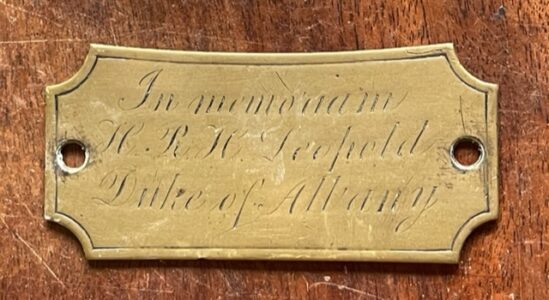 In memoriam
H.R.H. Leopold
Duke of Albany